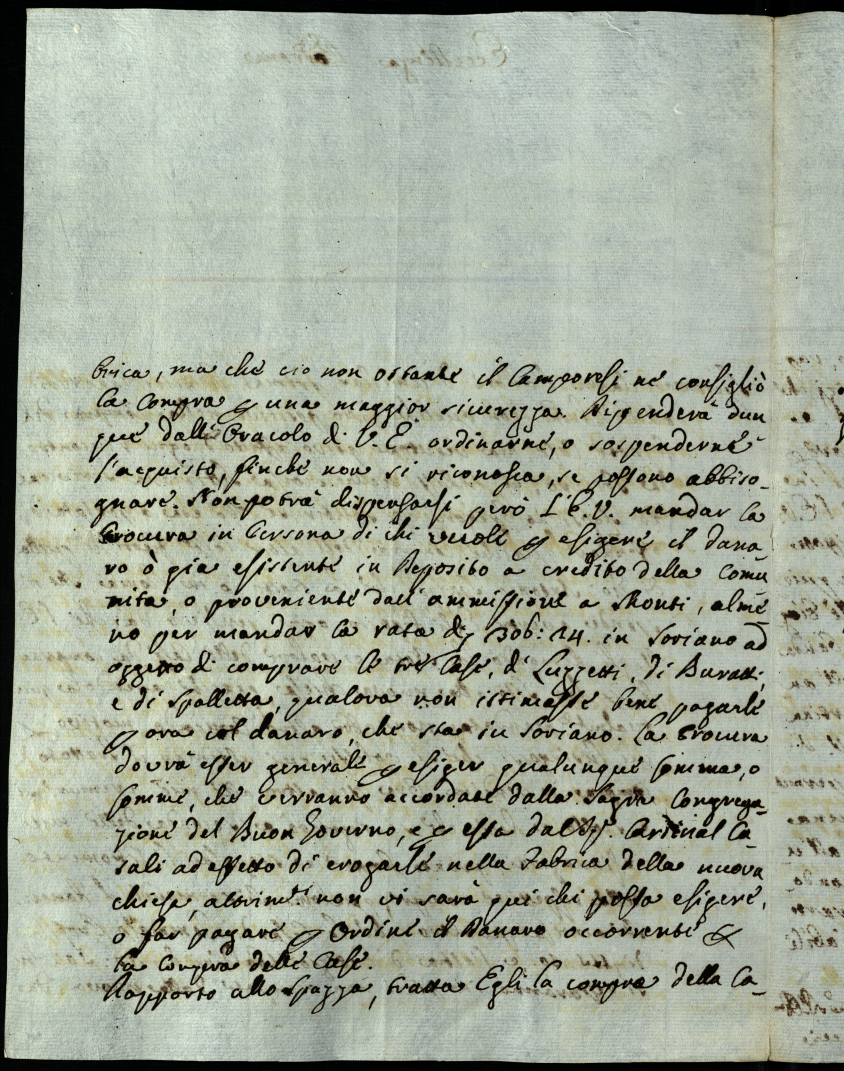 brica, ma che cio non ostante il Camporesi ne consigliò
la compra p una maggior sicurezza. Dipenderà dun
que dall'Oracolo di V. E. ordinarne, o sospenderne
l'acquisto, finche non si riconosca, se possono abbiso-
gnare. Non potrà dispensarsi però L'E. V. mandar la
Procura in Persona di chi vuole p esigere il dana
ro ò gia esistente in Deposito a credito della Comu
nità, o proveniente dall'ammissione a Monti, alme
no per mandar la rata di 306: 24. in Soriano ad
oggetto di comprare le tre Case, di Luzzetti, di Buratti,
e di Spalletta, qualora non istimasse bene pagarle
p ora col danaro, che sta in Soriano. La Procura
dovrà esser generale p esiger qualunque somma, o
somme, che verranno accordate dalla Sagra Congrega-
zione del Buon Governo, e p essa dal Sig. Cardinal Ca-
sali ad effetto di erogarle nella Fabrica della nuova
chiesa, altrim.ti non vi sarà qui chi possa esigere,
o far pagare p Ordine il Danaro occorrente p
la compra delle Case.
Rapporto allo Spazza, tratta Egli la compra della Ca-